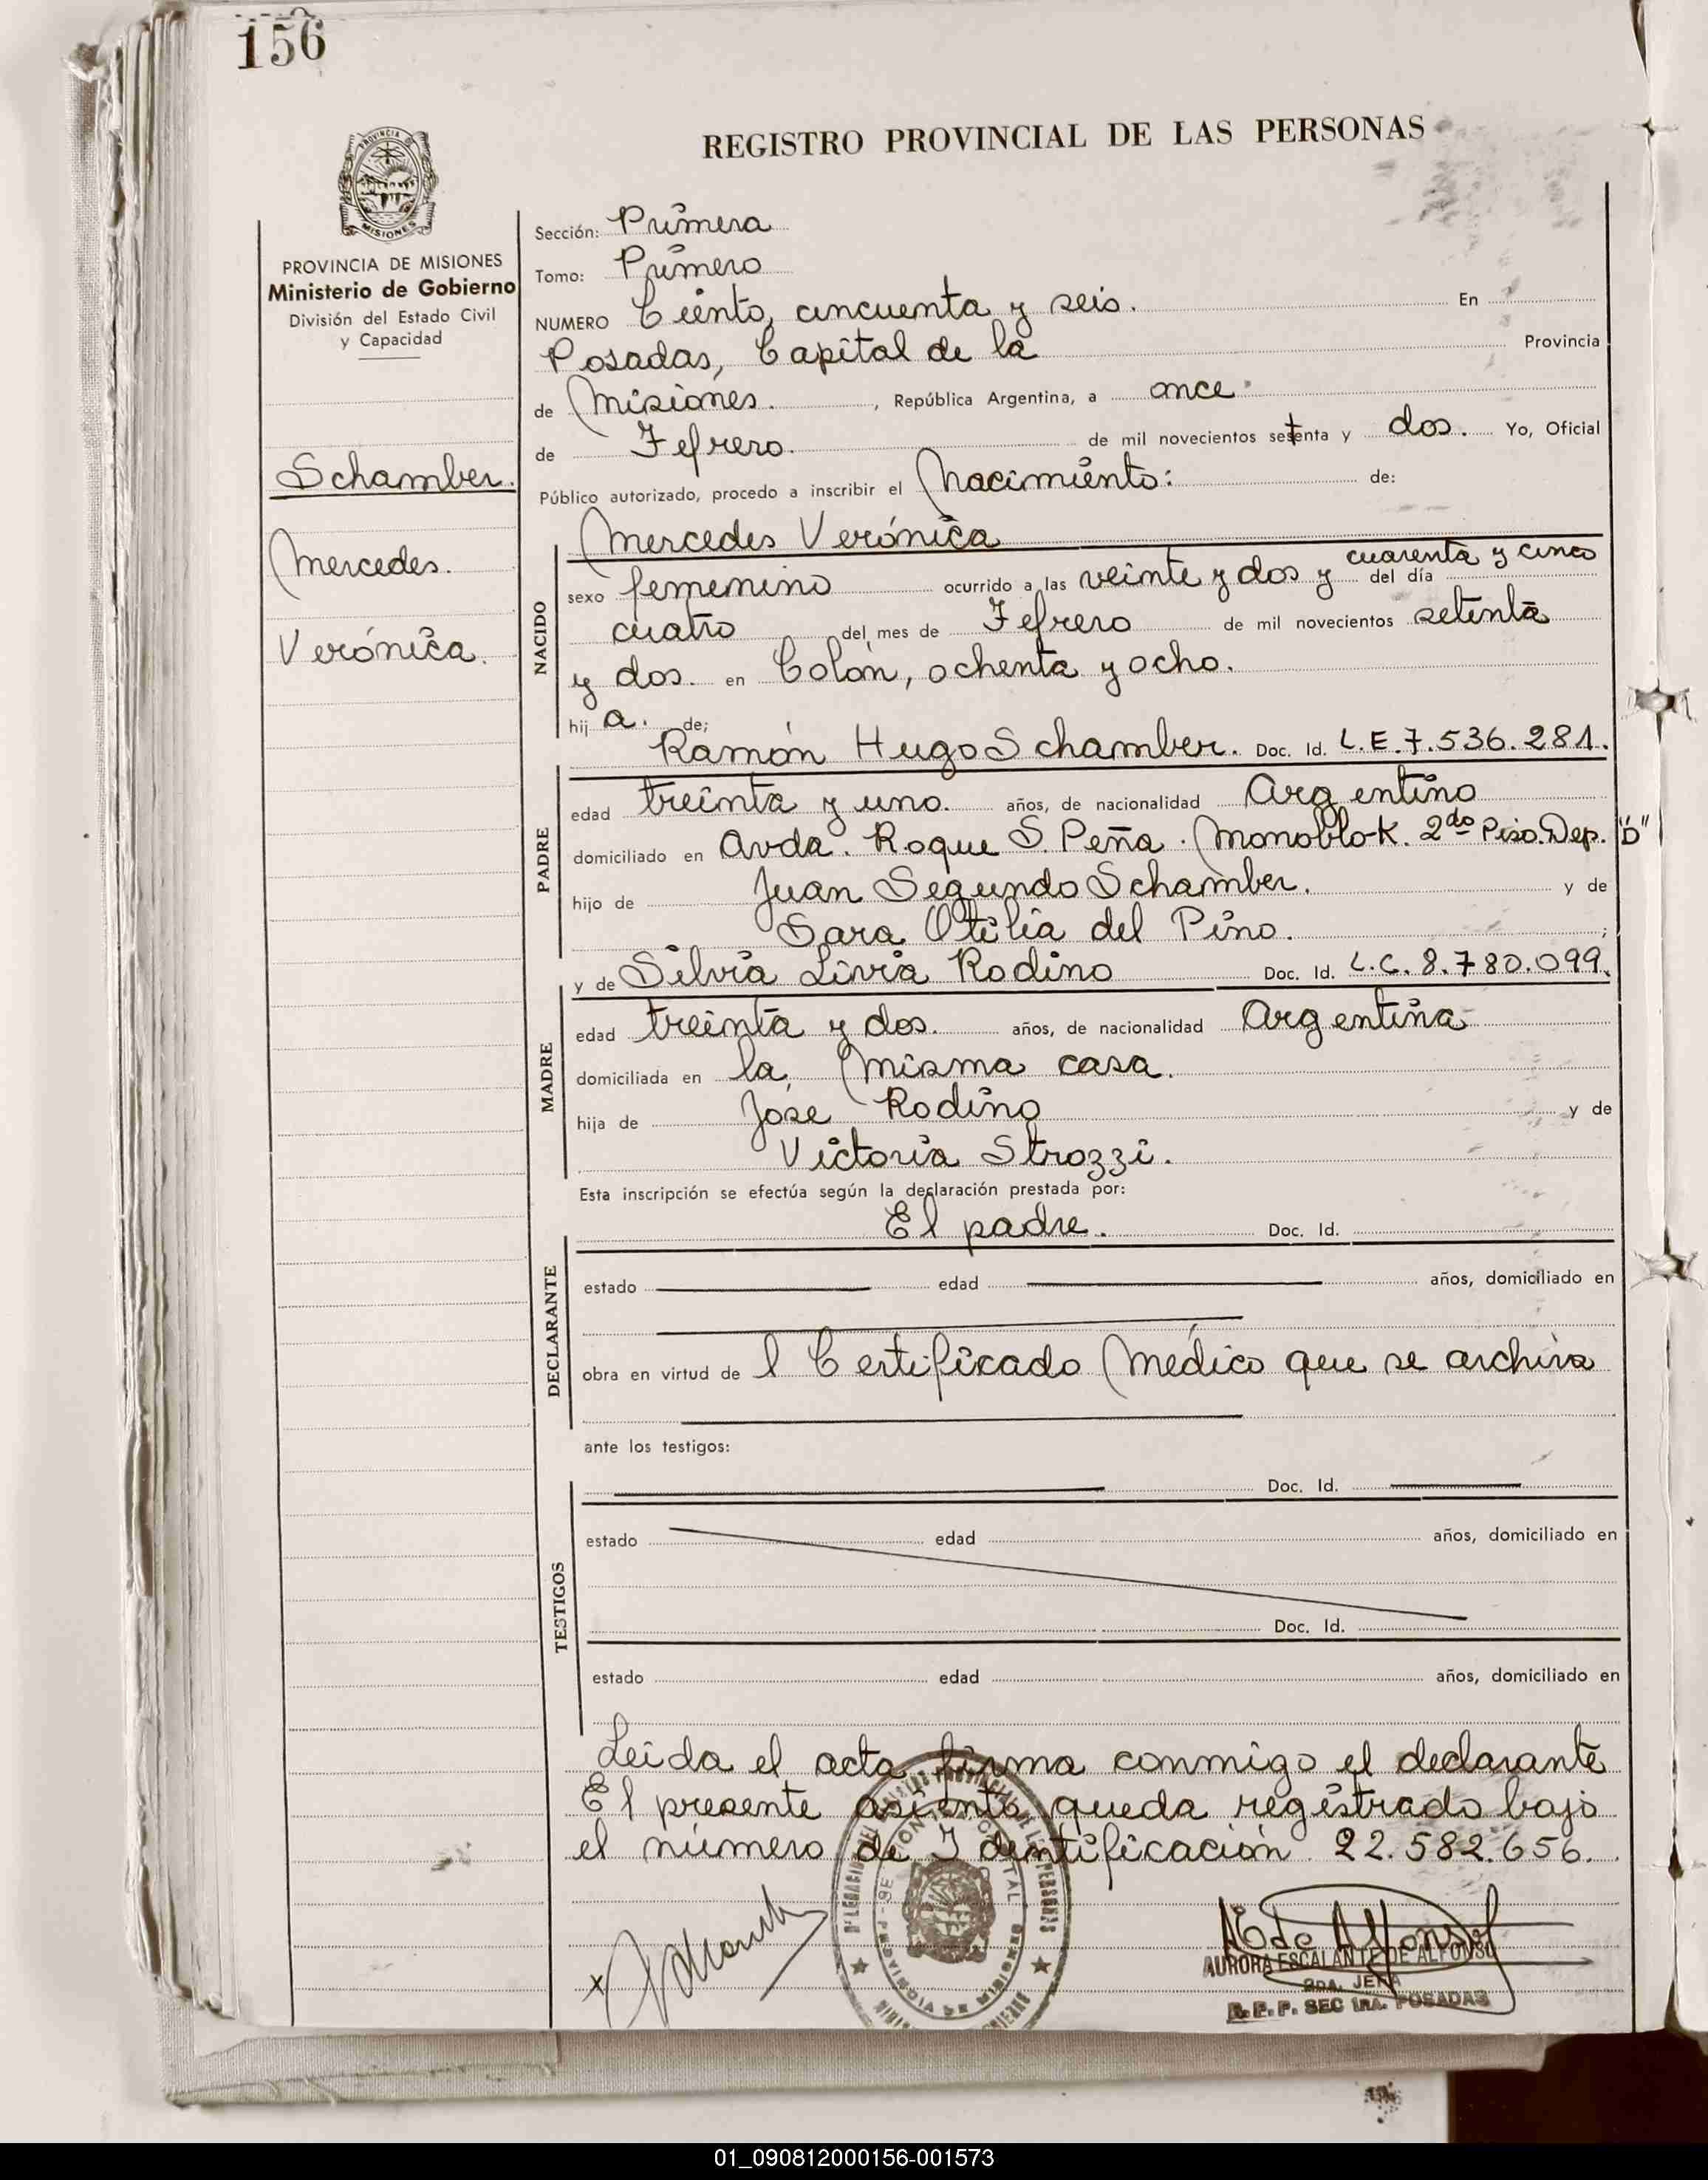 156
REGISTRO PROVINCIAL DE LAS PERSONAS
PROVINCIA DE MISIONES
Ministerio de Gobierno
División del Estado Civil
y Capacidad
Schamber.
Mercedes.
Verónica.
Sección: Primera
Tomo: Primero
NUMERO Ciento, cincuenta y seis. En
Posadas, Capital de la Provincia
de Misiones. , República Argentina, a once
de Febrero. de mil novecientos setenta y dos. Yo, Oficial
Público autorizado, procedo a inscribir el Nacimiento: de:
Mercedes Verónica
NACIDO
sexo femenino ocurrido a las veinte y dos y cuarenta y cinco del día
cuatro del mes de Febrero de mil novecientos setenta
y dos. en Colón, ochenta y ocho.
hij a. de;
Ramón Hugo Schamber. Doc. Id. L.E.7.536.281.
PADRE
edad treinta y uno. años, de nacionalidad Argentino
domiciliado en Avda. Roque S. Peña. Monoblo-K. 2do Piso. Dep. "D"
hijo de Juan Segundo Schamber. y de
Sara Otilia del Pino. ;
y de Silvia Livia Rodino Doc. Id. L.C. 8.780.099.
MADRE
edad treinta y dos. años, de nacionalidad Argentina
domiciliada en la, misma casa.
hija de Jose Rodino y de
Victoria Strozzi.
Esta inscripción se efectúa según la declaración prestada por:
El padre. Doc. Id.
DECLARANTE
estado edad años, domiciliado en
obra en virtud de l Certificado Médico que se archiva
ante los testigos:
Doc. Id.
TESTIGOS
estado edad años, domiciliado en
Doc. Id.
estado edad años, domiciliado en
Leida el acta firma conmigo el declarante
El presente asiento queda registrado bajo
el número de Identificación 22.582.656.
AURORA ESCALANTE DE ALFONSO
JEFA
R.P.P. SEC 1RA. POSADAS
01_090812000156-001573